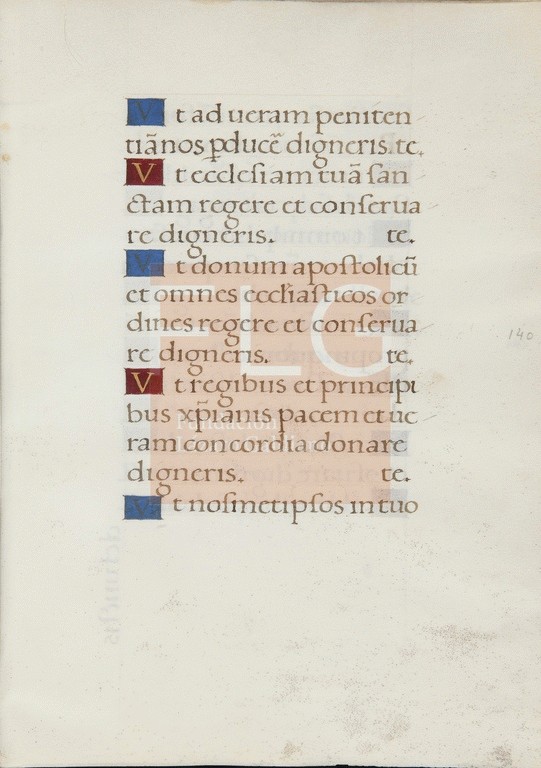 Vt ad ueram peniten
tiā nos ꝑducē digneris. te.
Vt ecclesiam tuā ſan
ctam regere et conſerua
re digneris. te.
Vt donum apoſtolicū
et omnes eccliaſticos or
dines regere et conſerua
re digneris. te.
Vt regibus et principi
bus xp̄ianis pacem et ue
ram concordiā donare
digneris. te.
Vt noſmetipſos in tuo
140
FLG
Fundación